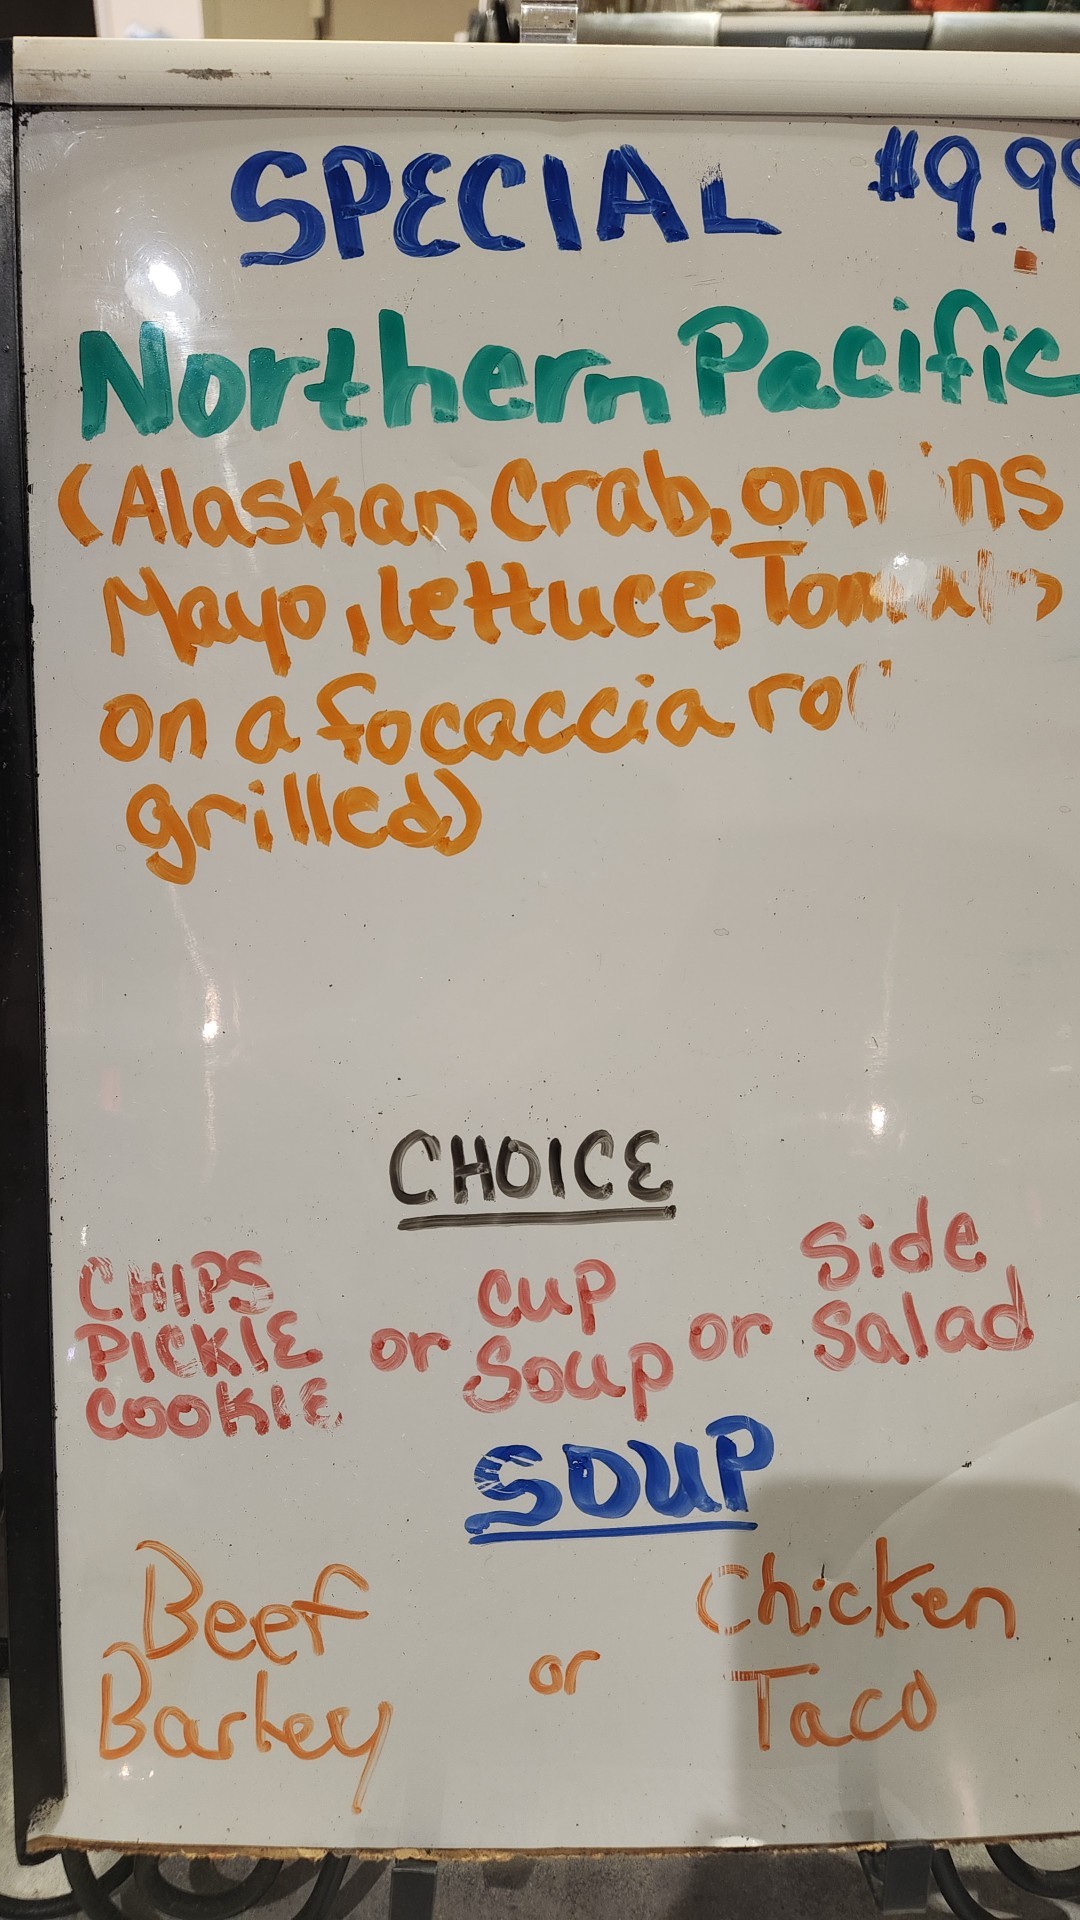 SPECIAL $9.99
Northern Pacific
(Alaskan Crab, onions
Mayo, lettuce, Tomato
on a focaccia roll
grilled)
CHOICE
CHIPS
PICKLE
COOKIE
or
Cup
Soup
or
Side
Salad
SOUP
Beef
Barley
or
Chicken
Taco